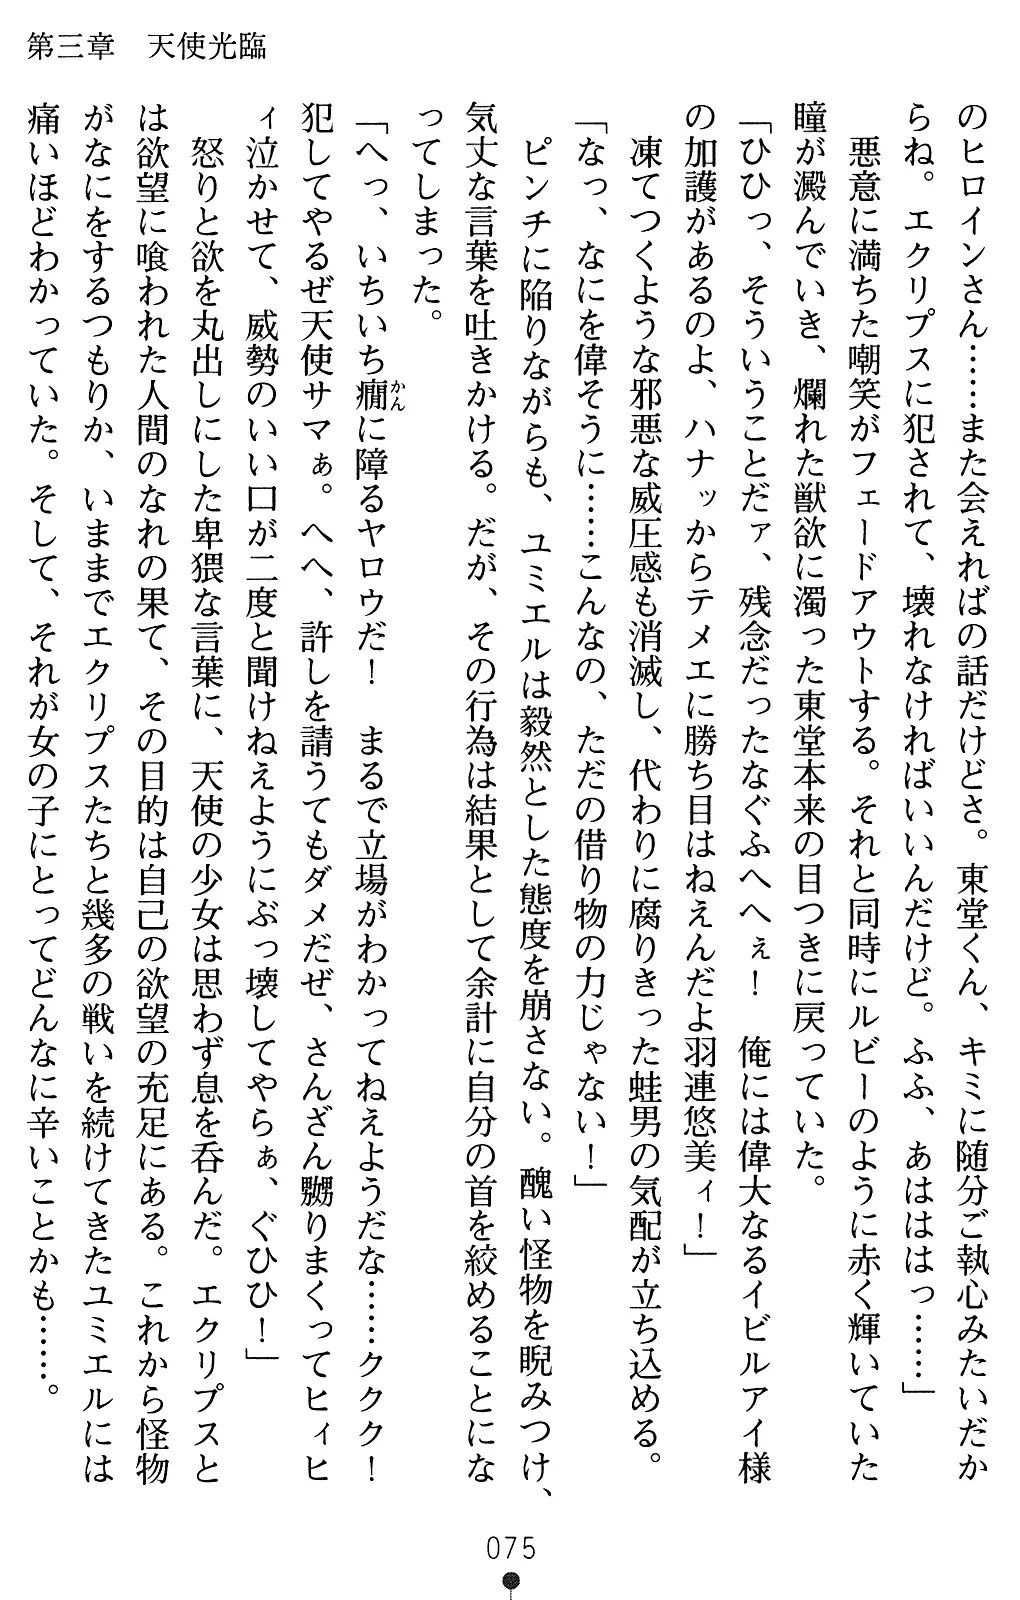 第三章　天使光臨
のヒロインさん……また会えればの話だけどさ。東堂くん、キミに随分ご執心みたいだか
らね。エクリプスに犯されて、壊れなければいいんだけど。ふふ、あはははっ……」
　悪意に満ちた嘲笑がフェードアウトする。それと同時にルビーのように赤く輝いていた
瞳が澱んでいき、爛れた獣欲に濁った東堂本来の目つきに戻っていた。
「ひひっ、そういうことだァ、残念だったなぐふへへぇ！　俺には偉大なるイビルアイ様
の加護があるのよ、ハナッからテメエに勝ち目はねえんだよ羽連悠美ィ！」
　凍てつくような邪悪な威圧感も消滅し、代わりに腐りきった蛙男の気配が立ち込める。
「なっ、なにを偉そうに……こんなの、ただの借り物の力じゃない！」
　ピンチに陥りながらも、ユミエルは毅然とした態度を崩さない。醜い怪物を睨みつけ、
気丈な言葉を吐きかける。だが、その行為は結果として余計に自分の首を絞めることにな
ってしまった。
「へっ、いちいち癇かんに障るヤロウだ！　まるで立場がわかってねえようだな……ククク！
犯してやるぜ天使サマぁ。へへ、許しを請うてもダメだぜ、さんざん嬲りまくってヒィヒ
ィ泣かせて、威勢のいい口が二度と聞けねえようにぶっ壊してやらぁ、ぐひひ！」
　怒りと欲を丸出しにした卑猥な言葉に、天使の少女は思わず息を呑んだ。エクリプスと
は欲望に喰われた人間のなれの果て、その目的は自己の欲望の充足にある。これから怪物
がなにをするつもりか、いままでエクリプスたちと幾多の戦いを続けてきたユミエルには
痛いほどわかっていた。そして、それが女の子にとってどんなに辛いことかも……。
075